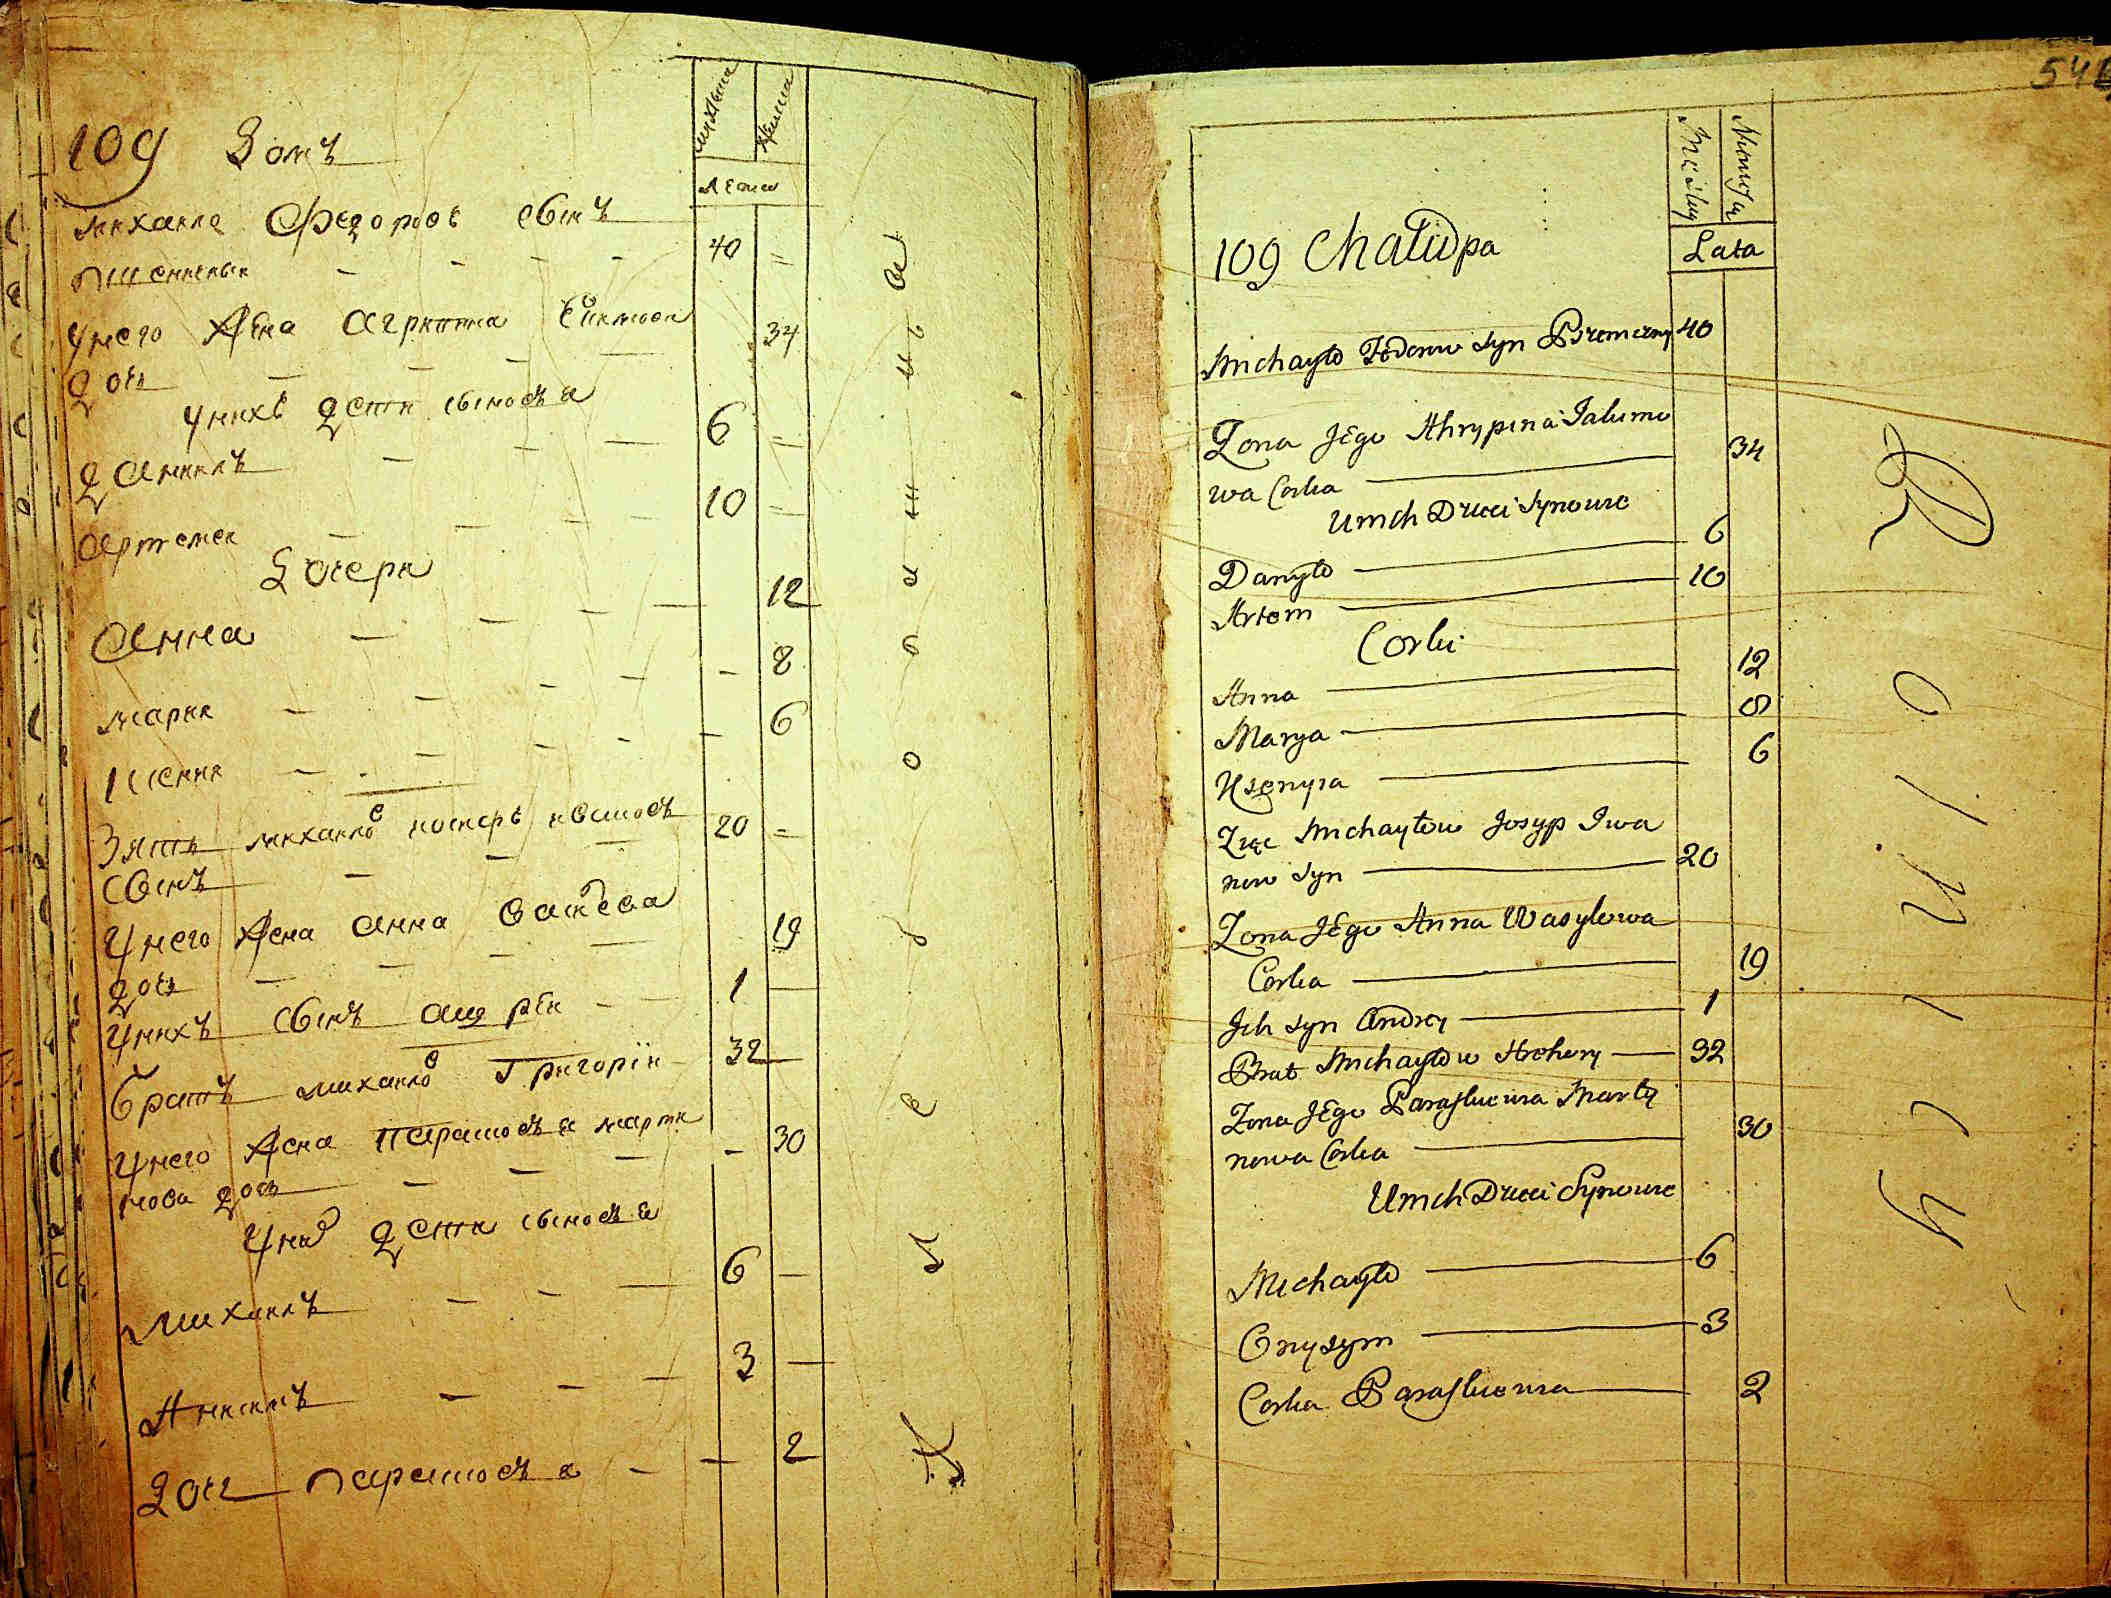 мужеска
женска
лета
109 Домъ
михаила Федоровъ сынъ
пшенични 40
унего жена Агрипина Екимова
дочь 34
унихъ дети сыновья
Данилъ 6
Артемей 10
Дочери
Анна 12
Мария 8
Ксения 6
Зять михайлов иосифъ ивановъ
сынъ 20
унего жена Анна Василева
дочь 19
унихъ сынъ андрей 1
братъ михайлов Григорій 32
унего жена парасковья марти
нова дочь 30
уних дети сыновья
михаилъ 6
Анисимъ 3
дочь парасковья 2
546
Męską
Niewiescią
Lata
109 Chałupa
Michayło Fedorow Syn 40
Zona Jego Ahrypina Jakimo
wa Corka 34
U nich Dzieci Synowie
Danyło 6
Artem 10
Corki
Anna 12
Marya 8
Xsenyia 6
Zięc Michayłow Josyp Iwa
now Syn 20
Zona Jego Anna Wasylowa
Corka 19
Jch Syn Andrey 1
Brat Michayłow Hrehory 32
Zona Jego Paraskewia Marty
nowa Corka 30
U nich Dzieci Synowie
Michayło 6
Onysym 3
Corka Paraskewia 2
R o l n i c y